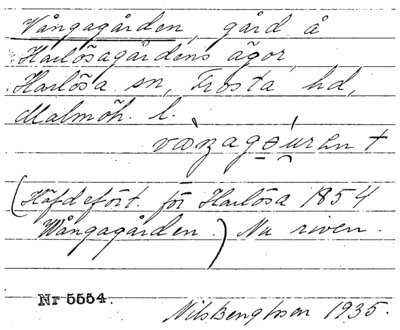 Vångagården, gård å
Harlösagårdens ägor,
Harlösa sn, Frosta hd,
Malmöh. l.
(Häfdefört. för Harlösa 1854
Wångagården.) Nu riven.
Nr 5554.
Nils Bengtsson 1935.